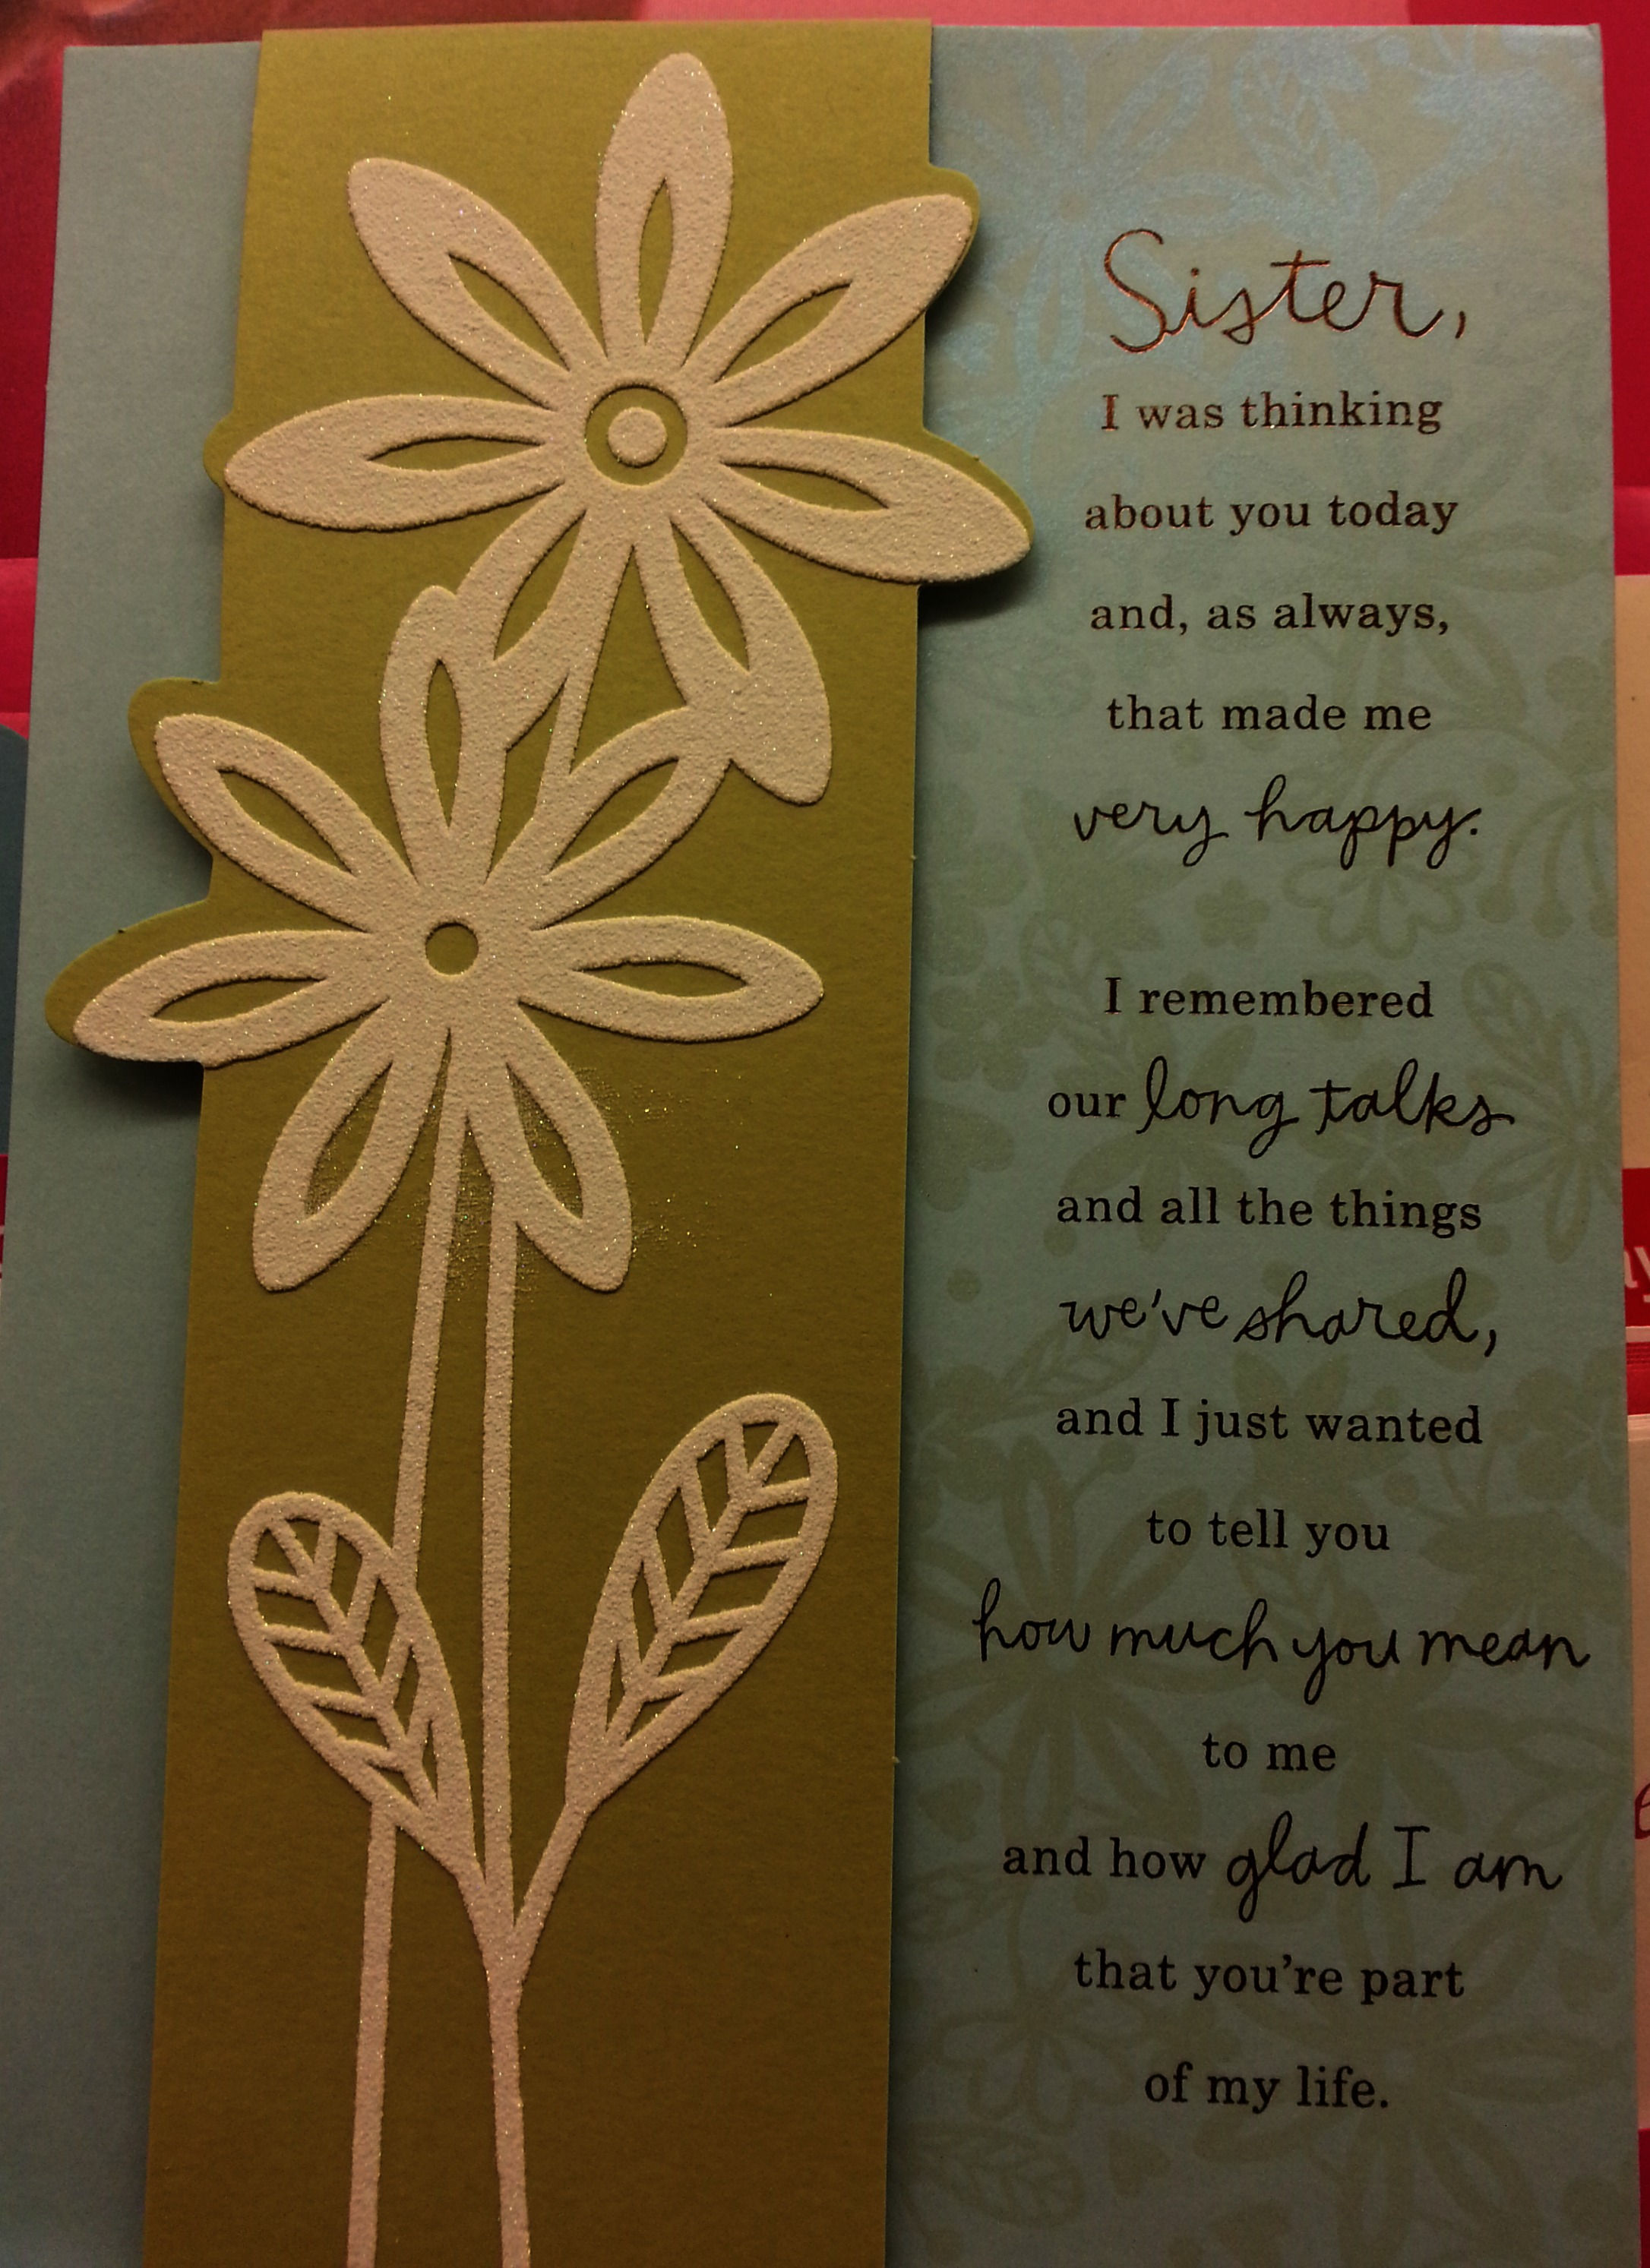 Sister,
I was thinking
about you today
and, as always,
that made me
very happy.
I remembered
our long talks
and all the things
we've shared,
and I just wanted
to tell you
how much you mean
to me
and how glad I am
that you're part
of my life.